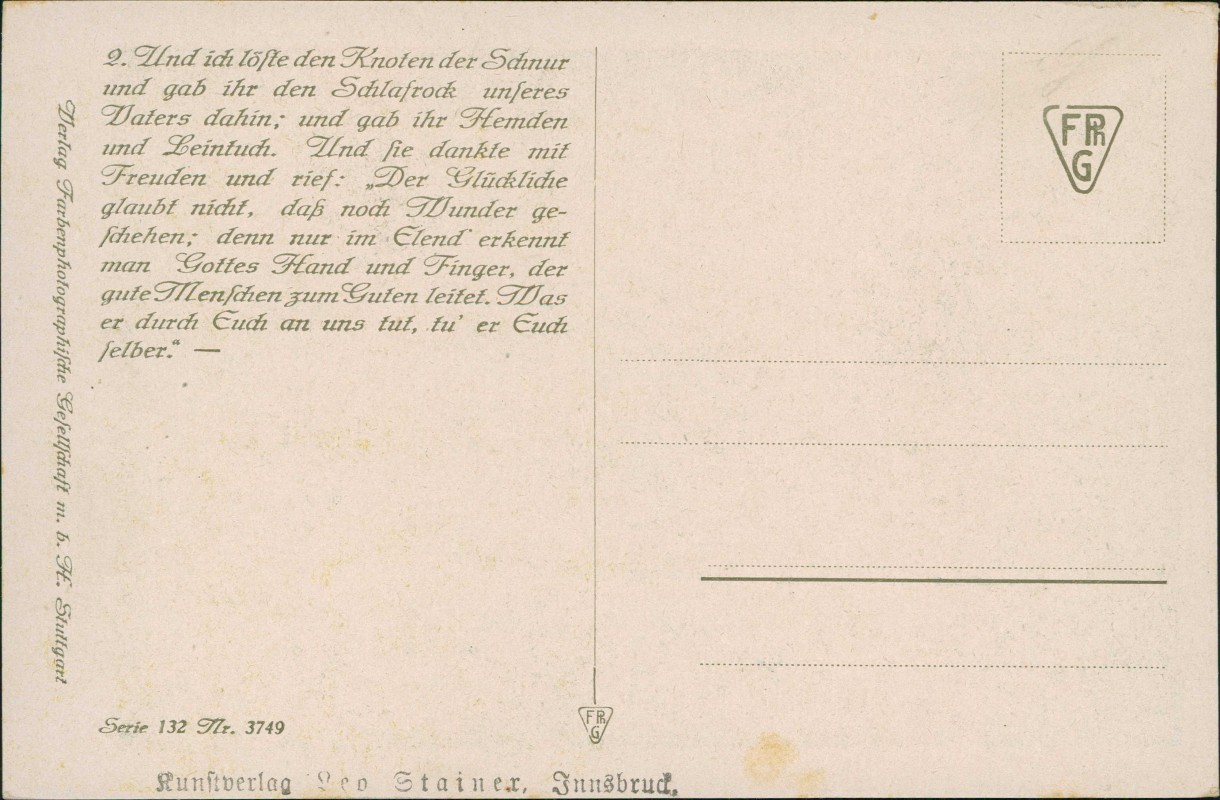 2. Und ich löſte den Knoten der Schnur
und gab ihr den Schlafrock unſeres
Vaters dahin; und gab ihr Hemden
und Leintuch. Und ſie dankte mit
Freuden und rief: „Der Glückliche
glaubt nicht, daß noch Wunder ge-
ſchehen; denn nur im Elend erkennt
man Gottes Hand und Finger, der
gute Menſchen zum Guten leitet. Was
er durch Euch an uns tut, tu' er Euch
ſelber.“ —
Verlag Farbenphotographiſche Geſellſchaft m. b. H. Stuttgart
Serie 132 Nr. 3749
Kunſtverlag Leo Stainer, Innsbruck.
FPhG
FPhG